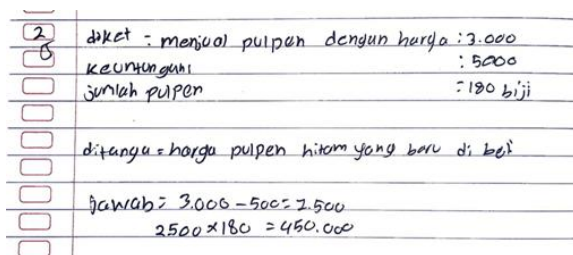 2 diket : menjual pulpen dengan harga : 3.000
keuntungani : 5000
jumlah pulpen = 180 biji
ditanya = harga pulpen hitam yang baru di beli
Jawab = 3.000 - 500 = 2.500
2500 × 180 = 450.000